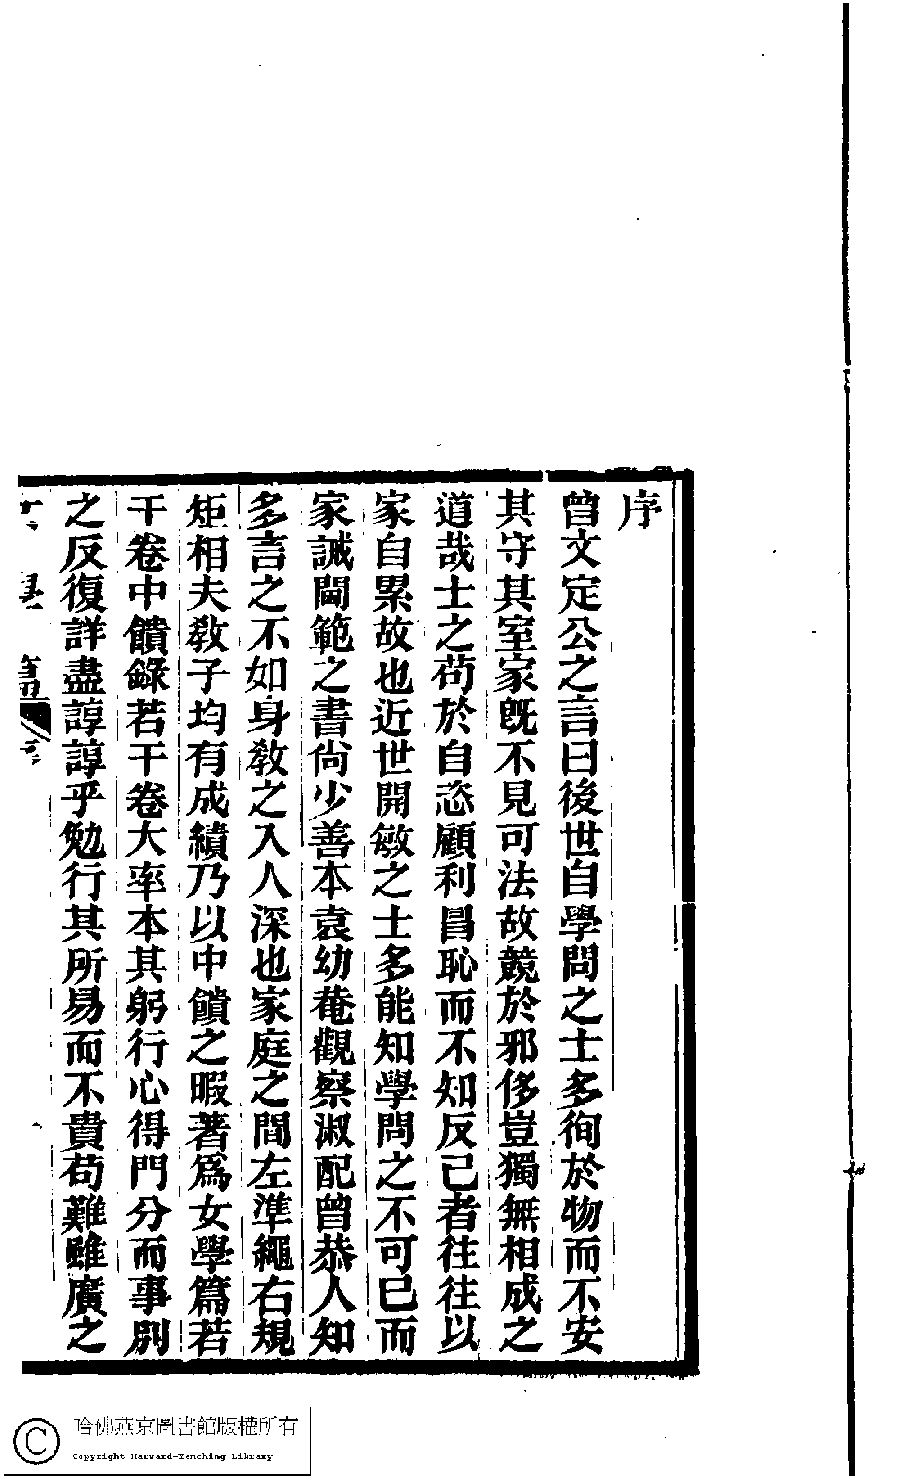 序
曾文定公之言曰後世自學問之士多徇於物而不安
其守其室家既不見可法故競於邪侈豈獨無相成之
道哉士之苟於自恣顧利昌恥而不知反己者往往以
家自累故也近世開敏之士多能知學問之不可已而
家誡閫範之書尙少善本袁幼菴觀察淑配曾恭人知
多言之不如身敎之入人深也家庭之間左準繩右規
矩相夫敎子均有成績乃以中饋之暇著爲女學篇若
干卷中饋錄若干卷大率本其躬行心得門分而事別
之反復詳盡諄諄乎勉行其所易而不貴苟難雖廣之
哈佛燕京圖書館版權所有
Copyright Harvard-Yenching Library